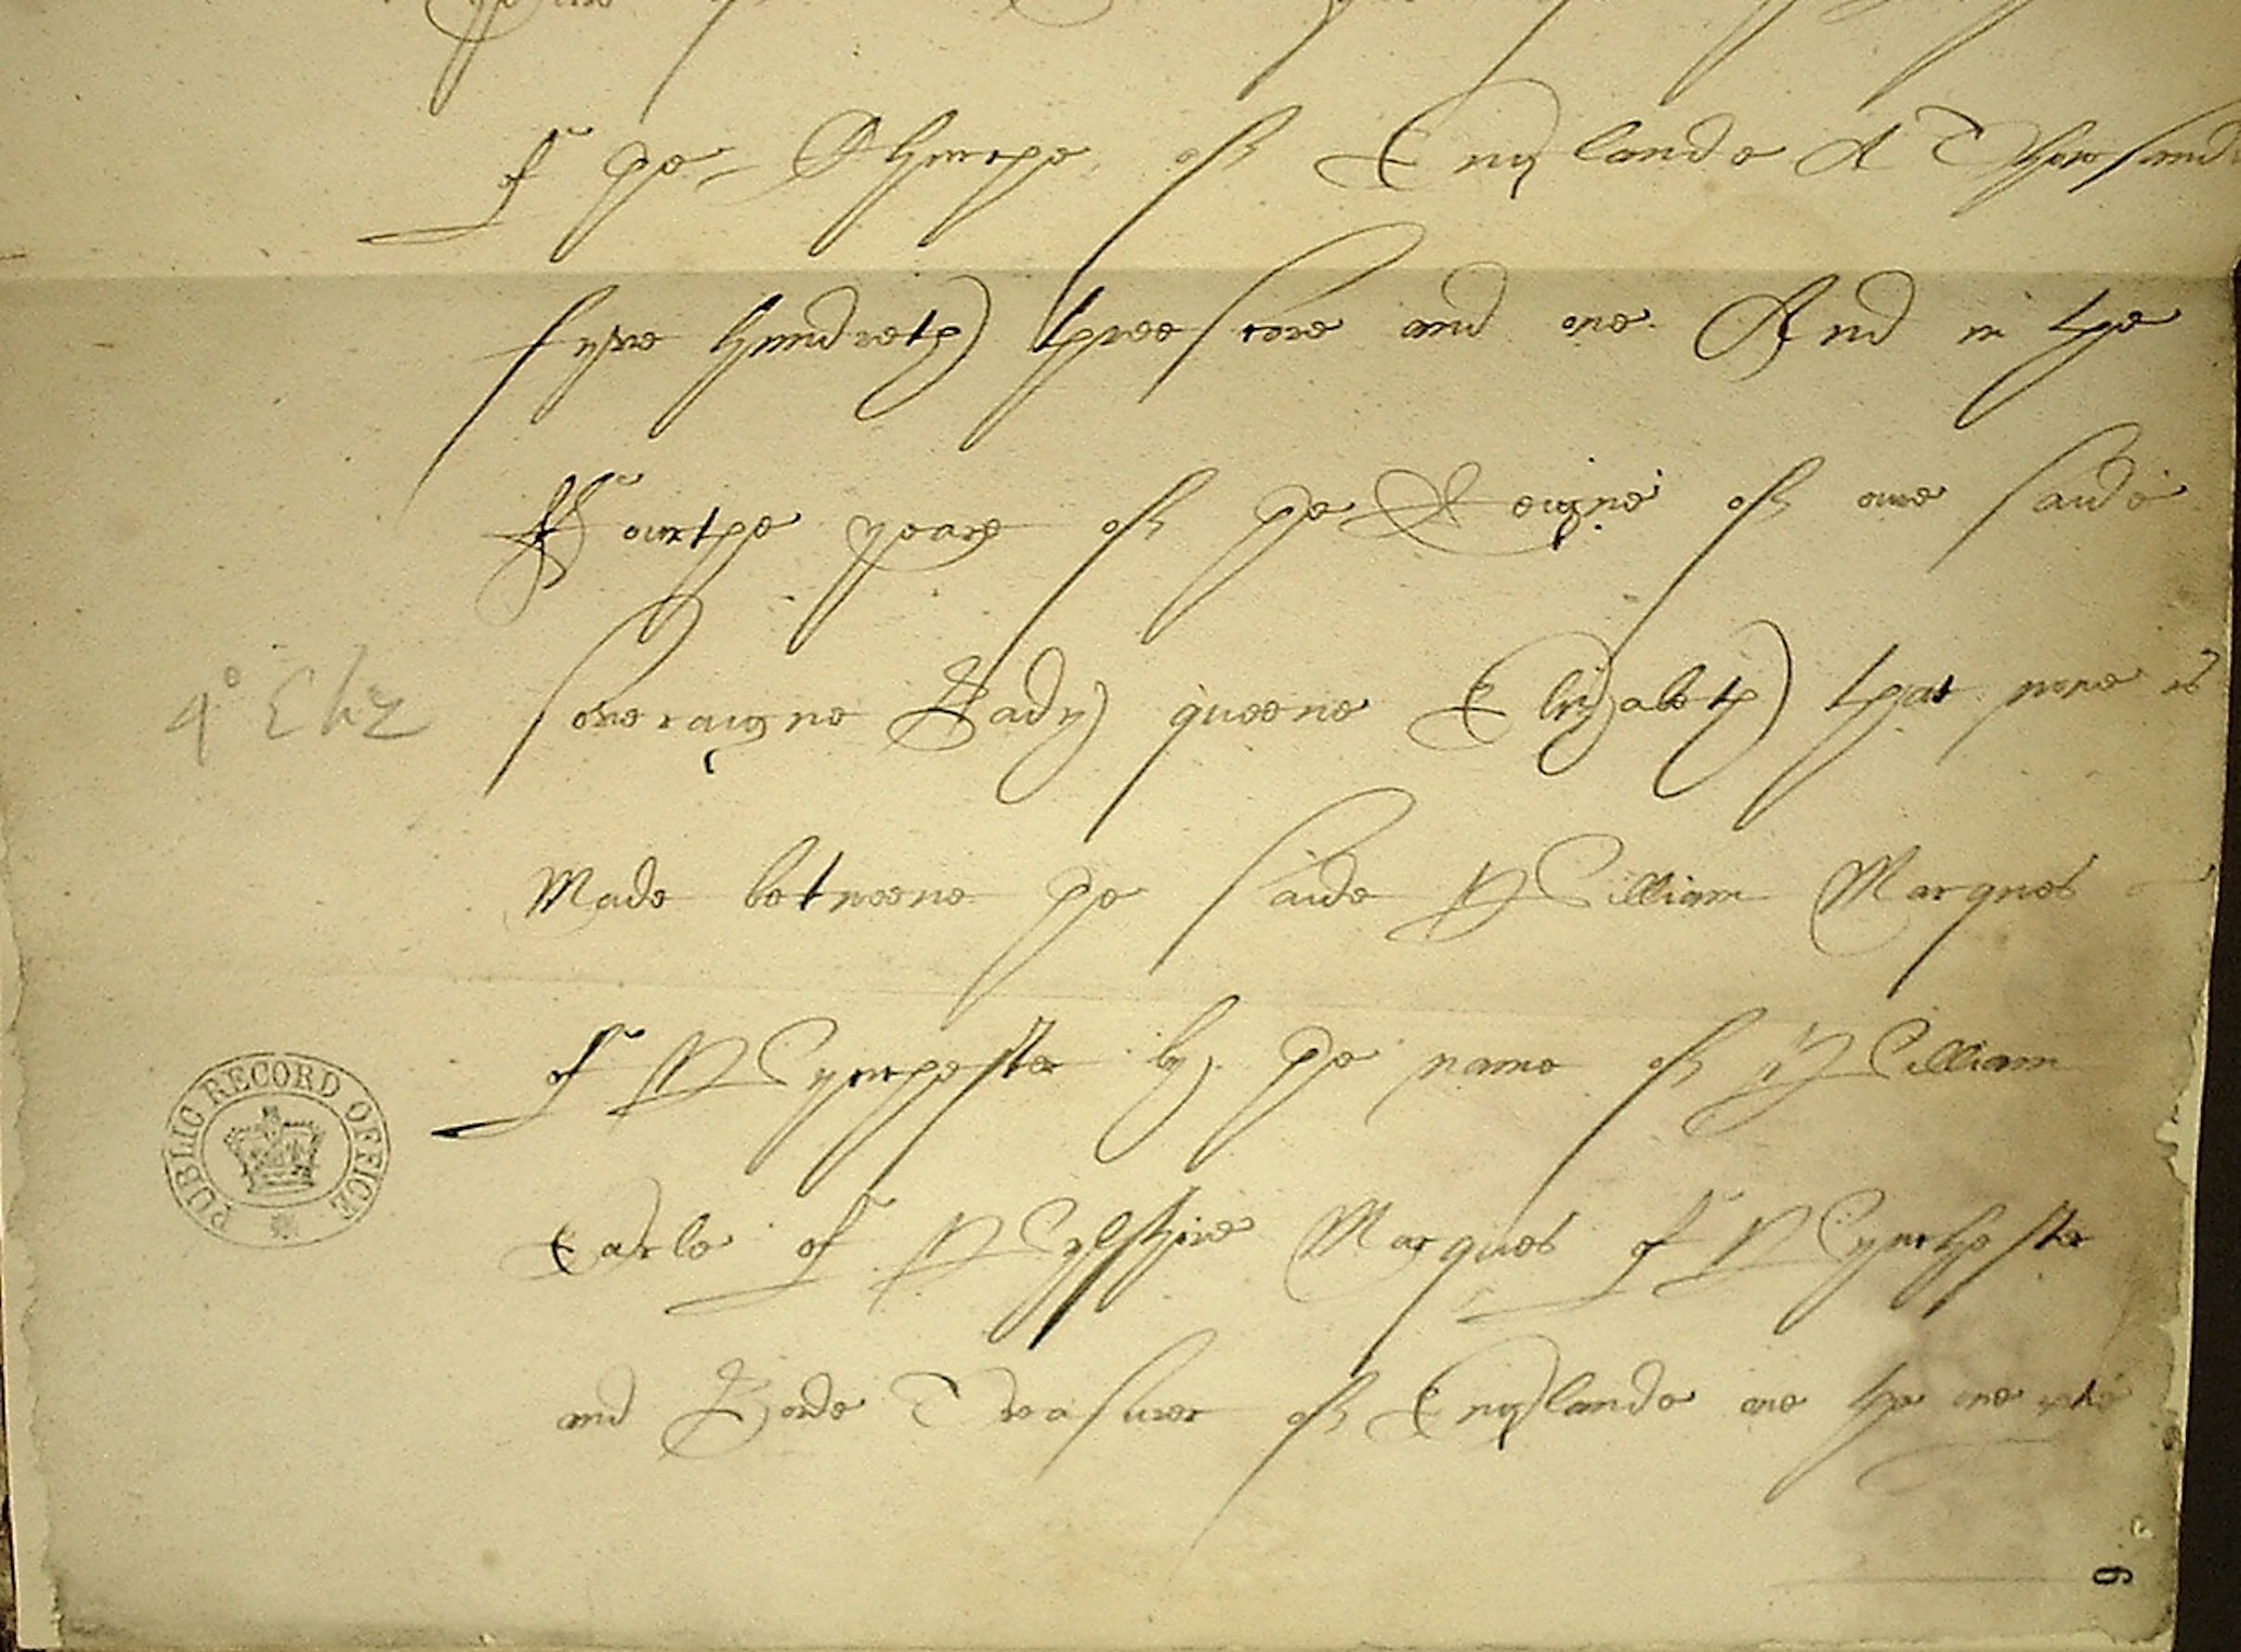 of the Churche of Englande A Thowsand
fyve hundreth threescore and one And in the
Fourthe yeare of the Reigne of oure saide
soveraigne Lady queene Elizabeth that nowe is
Made betweene the saide William Marques
of Wynchester by the name of William
4° Eliz
PUBLIC RECORD OFFICE
Earle of Wylshire Marques of Wynchester
and Lorde Treasurer of Englande one the one
9